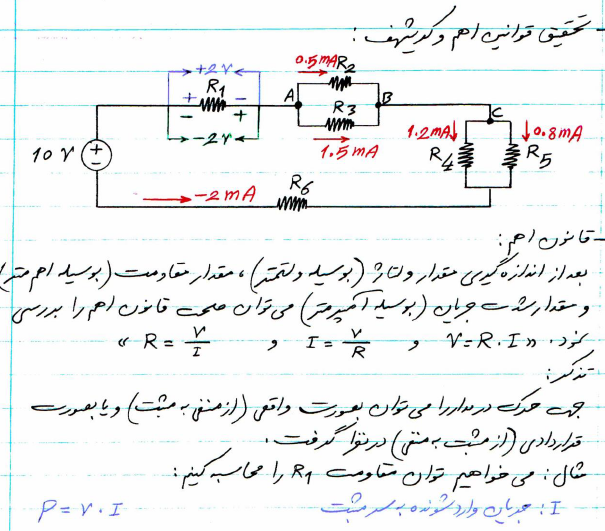 - تحقیق قوانین اهم و کیرشهف :
+2V
0.5mA R2
R1
+ -
- +
A
B
R3
C
-2V
1.5mA
1.2mA
0.8mA
10 V
+
-
R4
R5
R6
-2mA
- قانون اهم :
بعد از اندازه گیری مقدار ولتاژ (بوسیله ولتمتر)، مقدار مقاومت (بوسیله اهم متر)
و مقدار شدت جریان (بوسیله آمپرمتر) می توان صحت قانون اهم را بررسی
کرد. «V=R.I و I = V/R و R = V/I»
تذکر:
جهت حرکت در مدار را می توان بصورت واقعی (از منفی به مثبت) و یا بصورت
قراردادی (از مثبت به منفی) در نظر گرفت.
مثال : می خواهیم توان مقاومت R1 را محاسبه کنیم :
P = V . I
I : جریان وارد شونده به سر مثبت